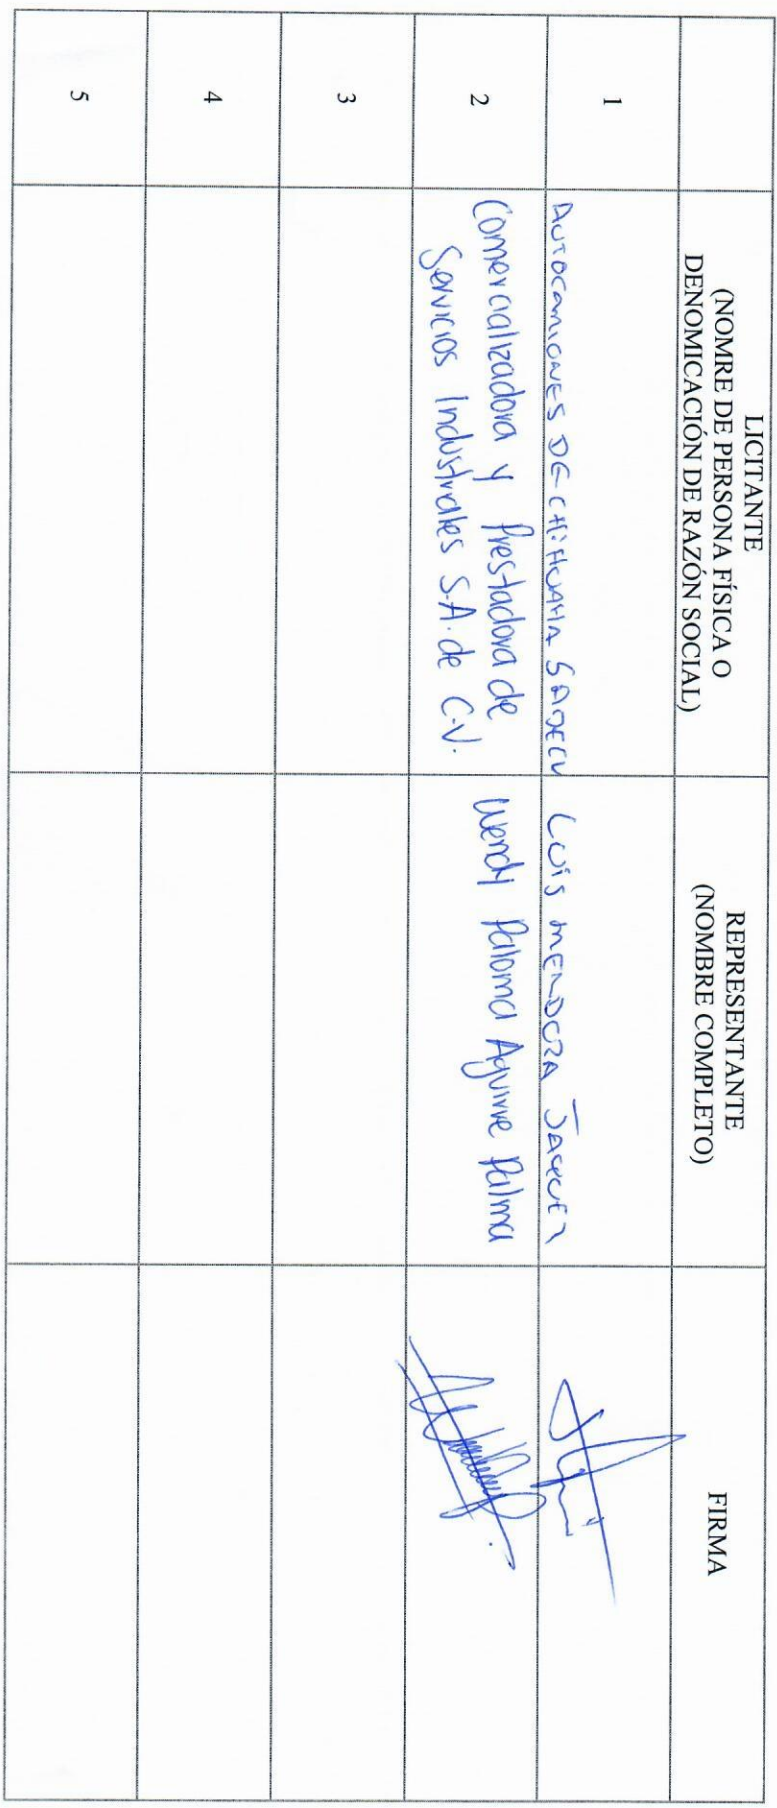 LICITANTE
(NOMRE DE PERSONA FÍSICA O
DENOMICACIÓN DE RAZÓN SOCIAL)
REPRESENTANTE
(NOMBRE COMPLETO)
FIRMA
1
AUTOCAMIONES DE CHIHUAHUA SADECV
LUIS MENDOZA JAQUEZ
2
Comercializadora y Prestadora de
Servicios Industriales S.A. de C.V.
Wendy Paloma Aguirre Palma
3
4
5